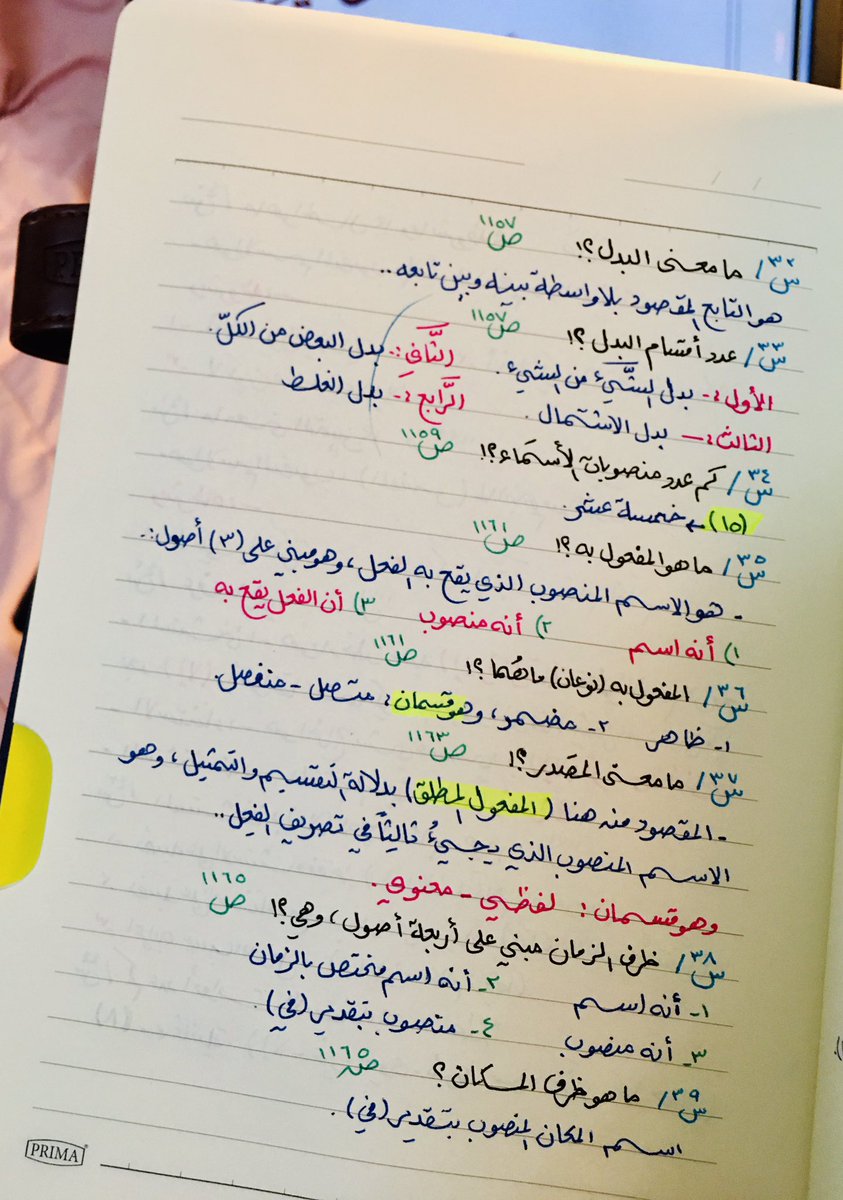 س٣٢/ ما معنى البدل؟! ص ١١٥٧
هو التابع المقصود بلا واسطة بينه وبين تابعه..
س٣٣/ عدد أقسام البدل؟! ص ١١٥٧
الأول:- بدل الشَّيء من الشيء. الثَّاني:- بدل البعض من الكلّ.
الثالث:- بدل الاشتمال. الرَّابع:- بدل الغلط
س٣٤/ كم عدد منصوبات الأسمَاء؟! ص ١١٥٩
(١٥) ← خمسة عشر.
س٣٥/ ما هو المفعول به؟! ص ١١٦١
- هو الاسم المنصوب الذي يقع به الفعل، وهو مبني على (٣) أصول:.
١) أنه اسم ٢) أنه منصوب ٣) أن الفعل يقع به
س٣٦/ المفعول به (نوعان) ما هُما؟! ص ١١٦١
١- ظاهر ٢- مضمر، وهو قسمان: متصل - منفصل.
س٣٧/ ما معنى المصدر؟! ص ١١٦٣
- المقصود منه هنا (المفعول المطلق) بدلالة التقسيم والتمثيل، وهو
الاسم المنصوب الذي يجيءُ ثالثاً في تصريف الفعل..
وهو قسمان: لفظي - معنوي.
س٣٨/ ظرف الزمان مبني على أربعة أصول، وهي؟! ص ١١٦٥
١- أنه اسم ٢- أنه اسم مختص بالزمان
٣- أنه منصوب ٤- منصوب بتقدير (في).
س٣٩/ ما هو ظرف المكان؟ ص ١١٦٥
اسم المكان المنصوب بتقدير (في).
PRIMA